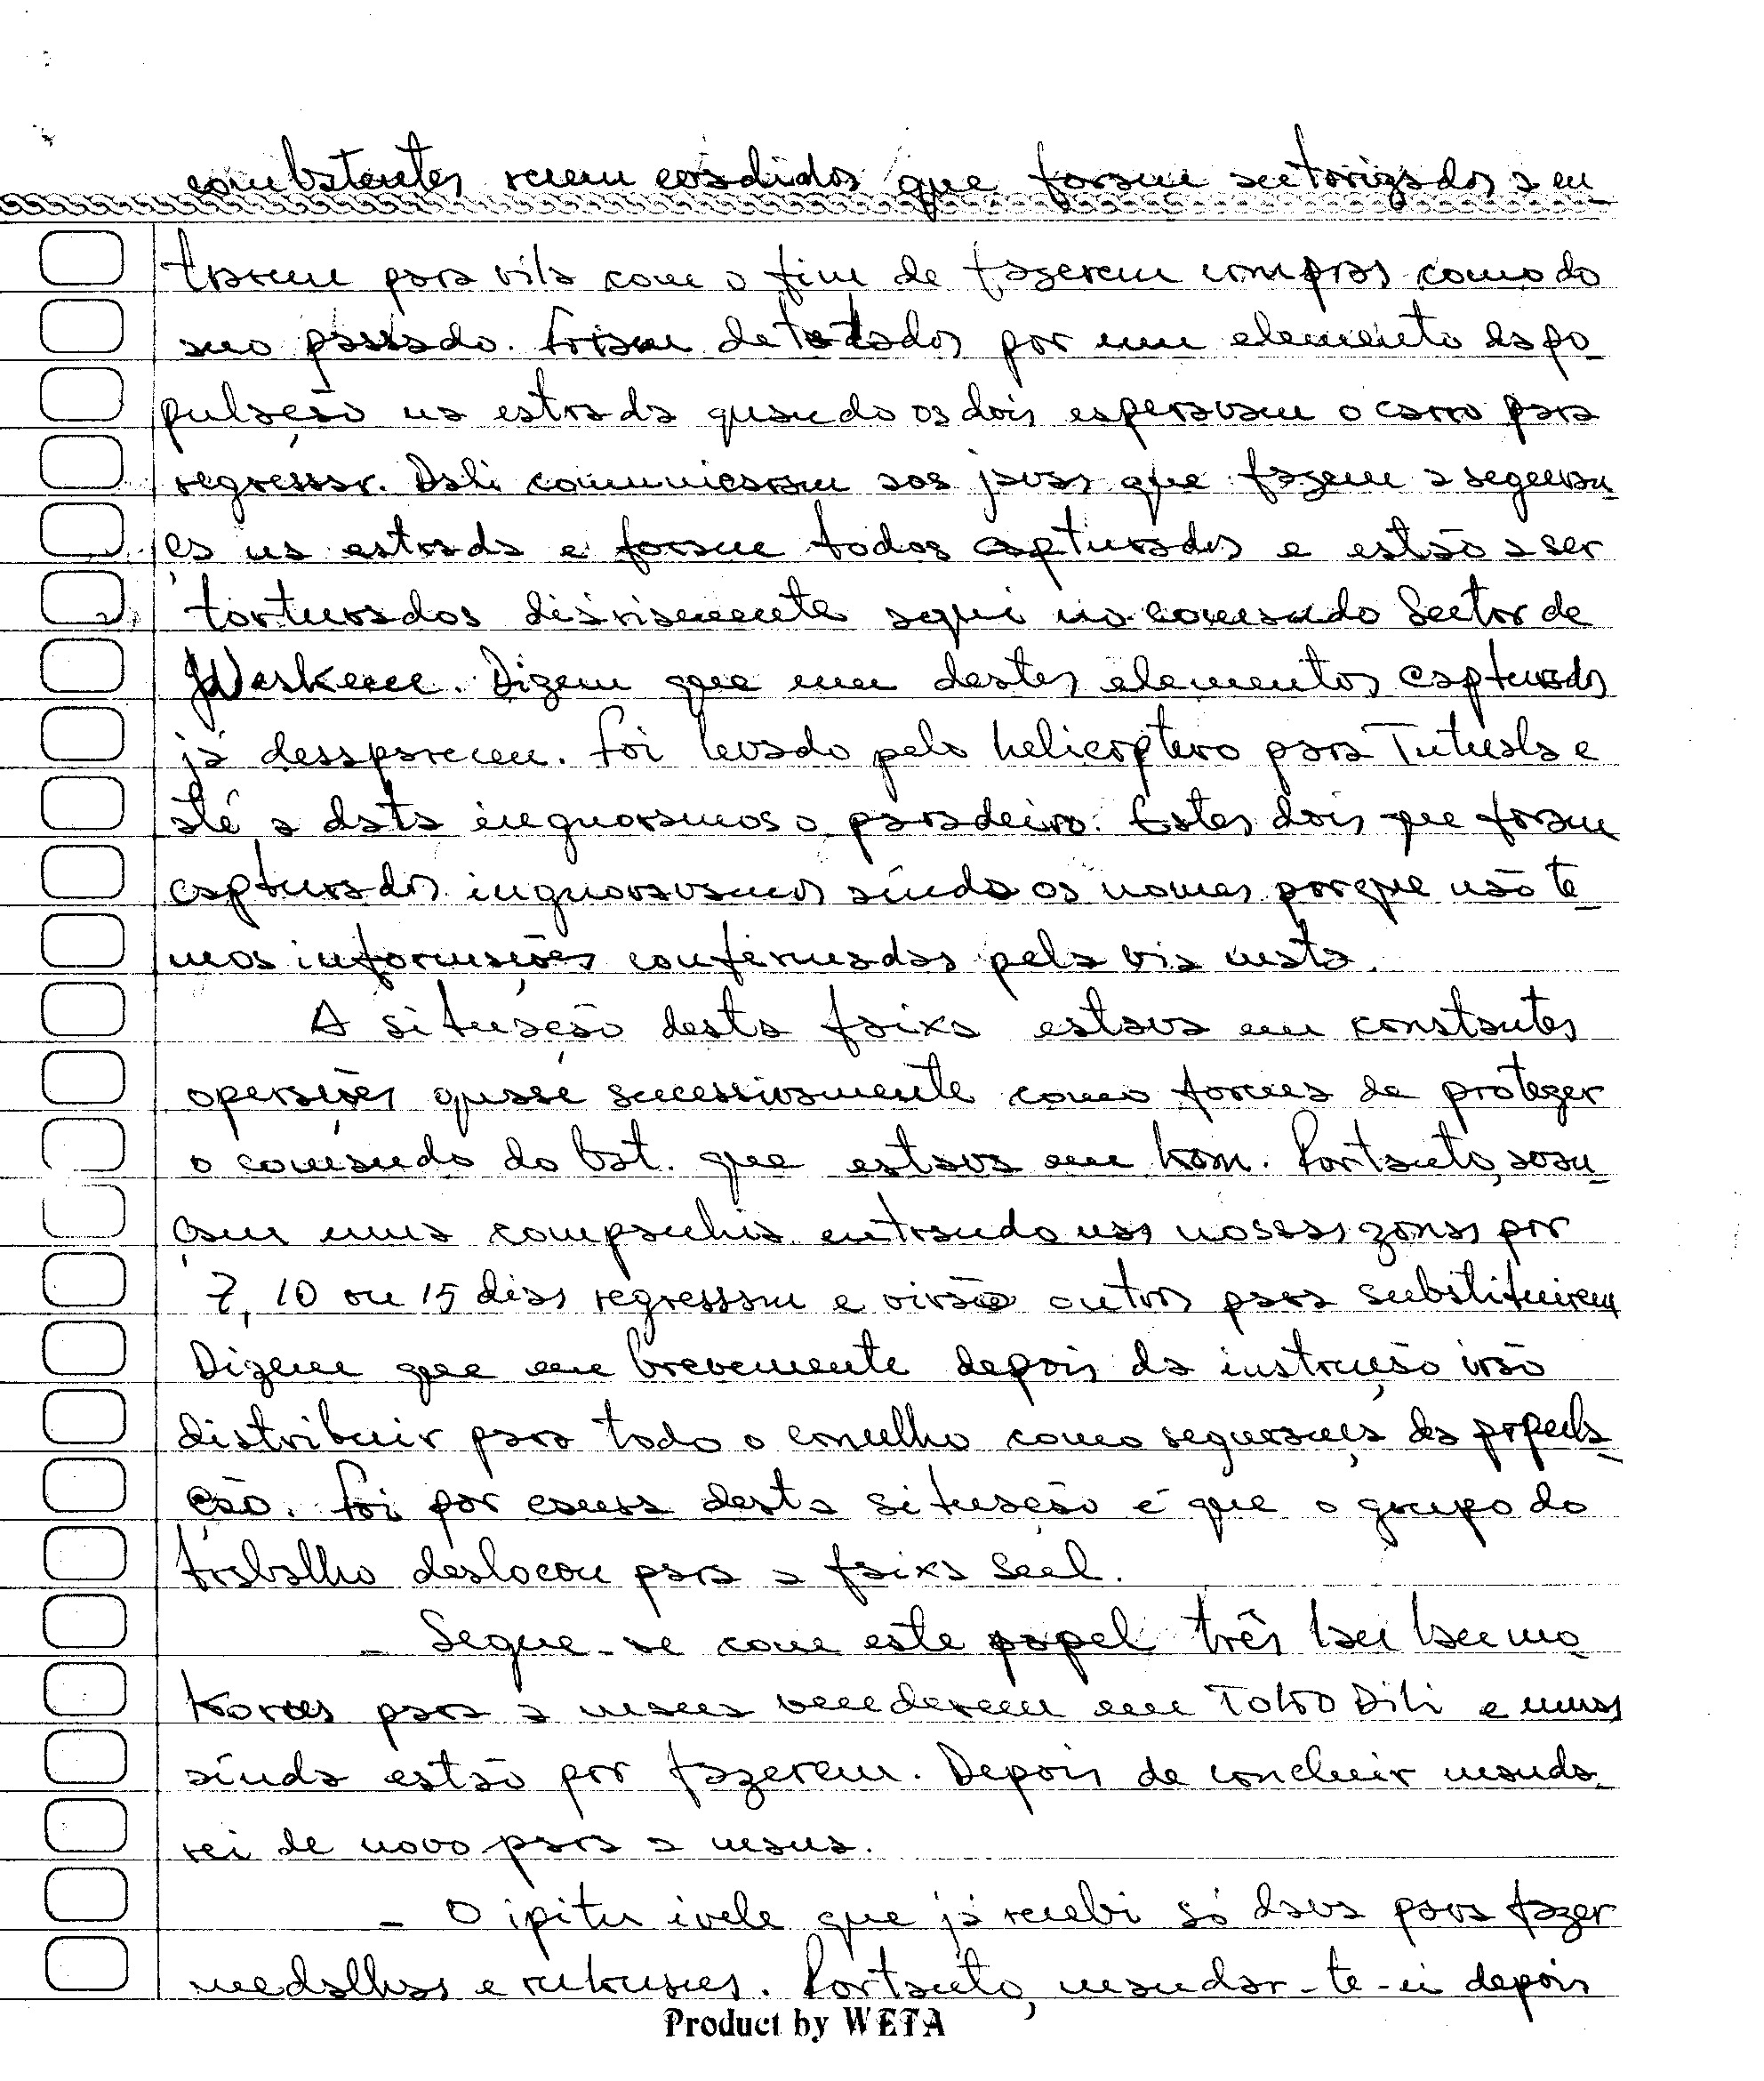 combatentes recem eradidos que foram autorizados a en_
trarem para vila com o fim de fazerem compras como do
ano passado. Foram detectados por um elemento da po_
pulação na estrada quando os dois esperavam o carro para
regressar. Dali comunicaram aos javas que fazem a seguran_
ça na estrada e foram todos capturados e estão a ser
torturados diáriamente aqui no comando Sector de
Dizem que um destes elementos capturados
já desapareceu. Foi levado pelo helicoptero para Tutuala e
até a data inguoramos o paradeiro. Estes dois que foram
capturados inguoravamos aínda os nomes porque não te_
mos informações confirmadas pela via nata.
A situação desta faixa estava em constantes
operações quase sucessivamente como forma de proteger
o comando do bat. que estava em hom. Portanto, avan_
çam uma companhia entrando nas nossas zonas por
7, 10 ou 15 dias regressam e virão outros para substituirem
Dizem que em brevemente depois da instrução irão
distribuir para todo o conselho como segurança da popula_
ção. Foi por causa desta situação é que o grupo do
trabalho deslocou para a faixa Seal.
_ Segue-se com este papel três bei bei mo_
koraes para a mana venderem em Toko Dili e umas
aínda estão por fazerem. Depois de concluir manda_
rei de novo para a mana.
_ O ipitu ivele que já recebi só dava para fazer
medalhas e rukusues. Portanto, mandar-te-ei depois
Product by WETA